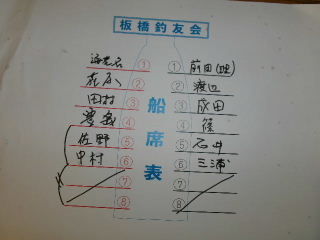 板橋釣友会
船席表
海老名 ① ① 前田(哲)
② ② 渡辺
田村 ③ ③ 成田
④ ④ 篠
佐野 ⑤ ⑤ 石井
中村 ⑥ ⑥ 三浦
⑦ ⑦
⑧ ⑧